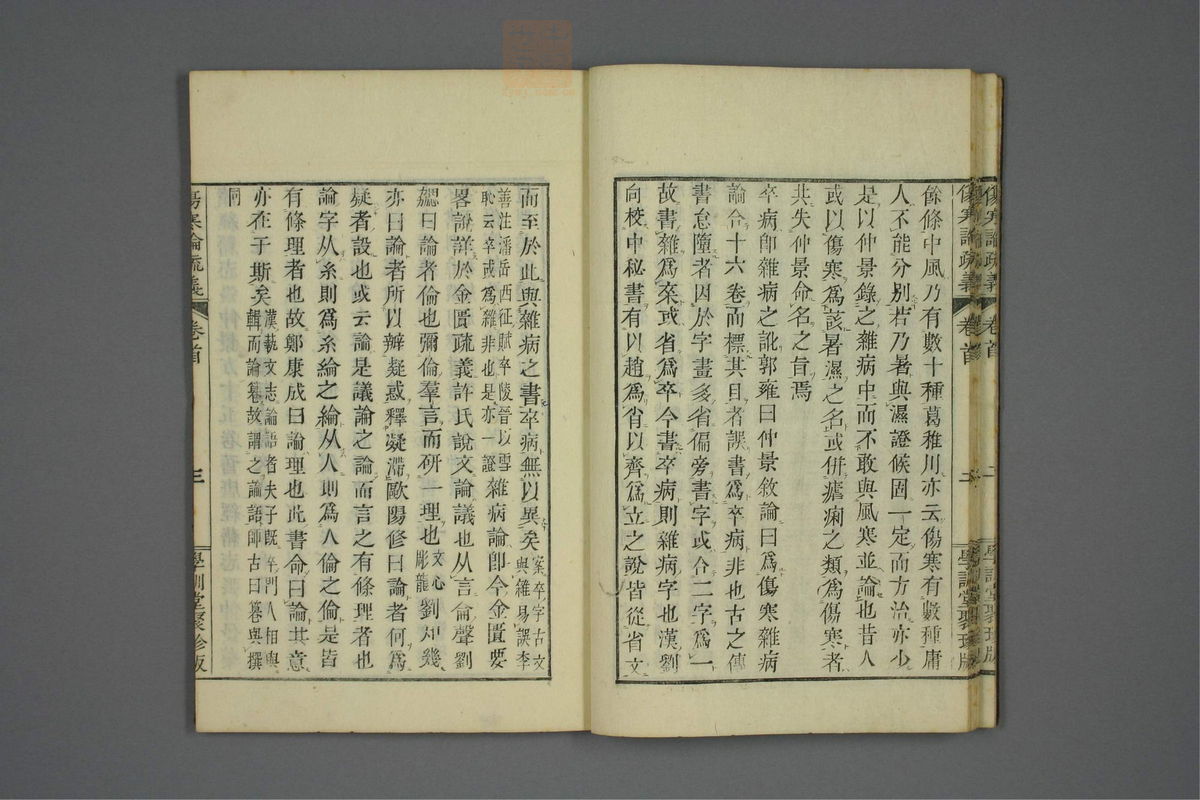 傷寒論疏義 卷首 二 學訓堂聚珍版
餘條中風乃有數十種葛稚川亦云傷寒有數種庸
人不能分別若乃暑與濕證候固一定而方治亦少
是以仲景錄之雜病中而不敢與風寒並論也昔人
或以傷寒爲該暑濕之名或併瘧痢之類爲傷寒者
共失仲景命名之旨焉
卒病卽雜病之訛郭雍曰仲景敘論曰爲傷寒雜病
論合十六卷而標其目者誤書爲卒病非也古之傳
書怠墮者因於字畫多省偏旁書字或合二字爲一
故書雜爲䘚或省爲卒今書卒病則雜病字也漢劉
向校中秘書有以趙爲肖以齊爲立之說皆從省文
而至於此與雜病之書卒病無以異矣案卒字古文與雜易誤李
善注潘岳西征賦卒陵晉以雪恥云卒或爲雜非也是亦一證雜病論卽今金匱要
畧說詳於金匱疏義許氏說文論議也从言侖聲劉
勰曰論者倫也彌倫羣言而研一理也文心彫龍劉知幾
亦曰論者所以辨疑惑釋凝滯歐陽修曰論者何爲
疑者設也或云論是議論之論而言之有條理者也
論字从糸則爲糸綸之綸从人則爲人倫之倫是皆
有條理者也故鄭康成曰論理也此書命曰論其意
亦在于斯矣漢藝文志論語者夫子旣卒門人相與輯而論篹故謂之論語師古曰篹與撰
同
傷寒論疏義 卷首 三 學訓堂聚珍版